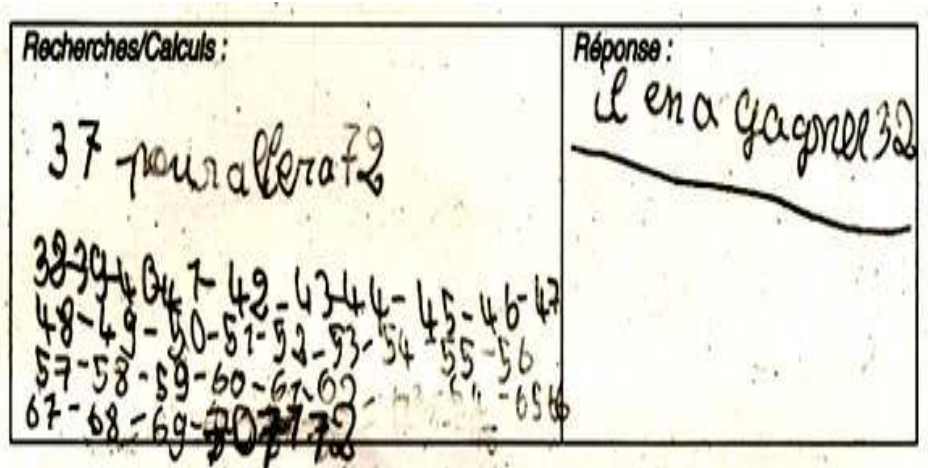 Recherches/Calculs :
37 pour aller a 72
38-39-40-41-42-43-44-45-46-47
48-49-50-51-52-53-54-55-56
57-58-59-60-61-62-63-64-6566
67-68-69-707172
Réponse :
il en a gagner 32